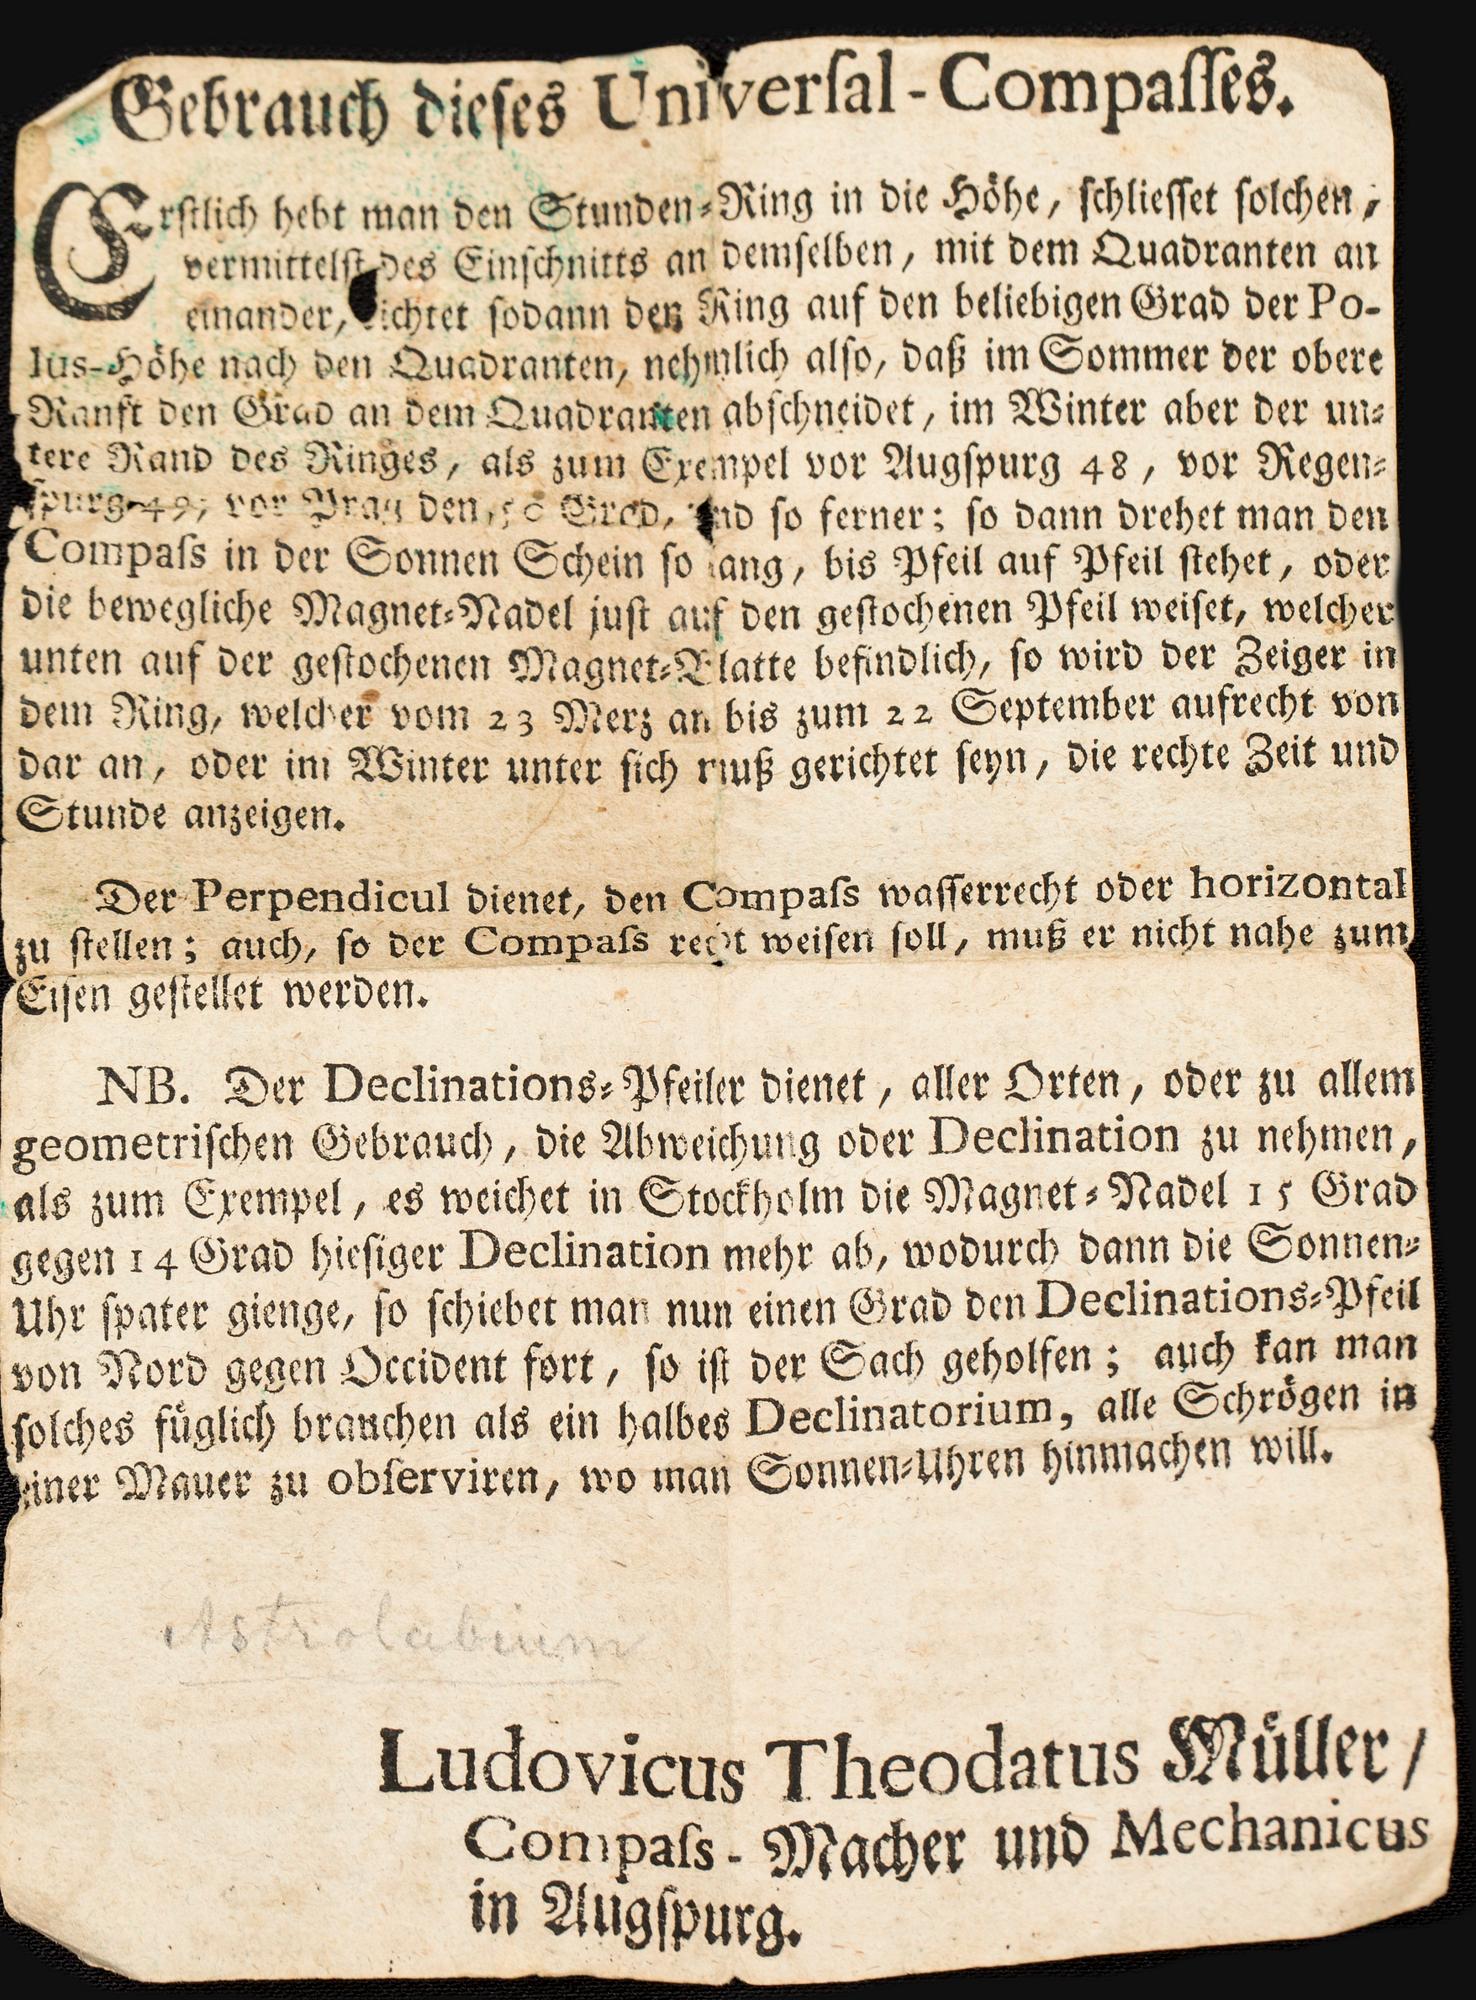 Gebrauch dieses Univerſal-Compaſſes.
Erſtlich hebt man den Stunden-Ring in die Höhe, ſchlieſſet ſolchen,
vermittelſt des Einſchnitts an demſelben, mit dem Quadranten an
einander, richtet ſodann den Ring auf den beliebigen Grad der Po-
lus-Höhe nach den Quadranten, nehmlich alſo, daß im Sommer der obere
Ranft den Grad an dem Quadranten abſchneidet, im Winter aber der un-
tere Rand des Ringes, als zum Exempel vor Augſpurg 48, vor Regen-
ſpurg 49, vor Prag den 50 Grad, und ſo ferner; ſo dann drehet man den
Compaſs in der Sonnen Schein ſo lang, bis Pfeil auf Pfeil ſtehet, oder
die bewegliche Magnet-Nadel juſt auf den geſtochenen Pfeil weiſet, welcher
unten auf der geſtochenen Magnet-Platte befindlich, ſo wird der Zeiger in
dem Ring, welcher vom 23 Merz an bis zum 22 September aufrecht von
dar an, oder im Winter unter ſich muß gerichtet ſeyn, die rechte Zeit und
Stunde anzeigen.
Der Perpendicul dienet, den Compaſs waſſerrecht oder horizontal
zu ſtellen; auch, ſo der Compaſs recht weiſen ſoll, muß er nicht nahe zum
Eiſen geſtellet werden.
NB. Der Declinations-Pfeiler dienet, aller Orten, oder zu allem
geometriſchen Gebrauch, die Abweichung oder Declination zu nehmen,
als zum Exempel, es weichet in Stockholm die Magnet-Nadel 15 Grad
gegen 14 Grad hieſiger Declination mehr ab, wodurch dann die Sonnen-
Uhr ſpater gienge, ſo ſchiebet man nun einen Grad den Declinations-Pfeil
von Nord gegen Occident fort, ſo iſt der Sach geholfen; auch kan man
ſolches füglich brauchen als ein halbes Declinatorium, alle Schrögen in
einer Mauer zu obſerviren, wo man Sonnen-Uhren hinmachen will.
Astrolabium
Ludovicus Theodatus Müller/
Compaſs-Macher und Mechanicus
in Augſpurg.